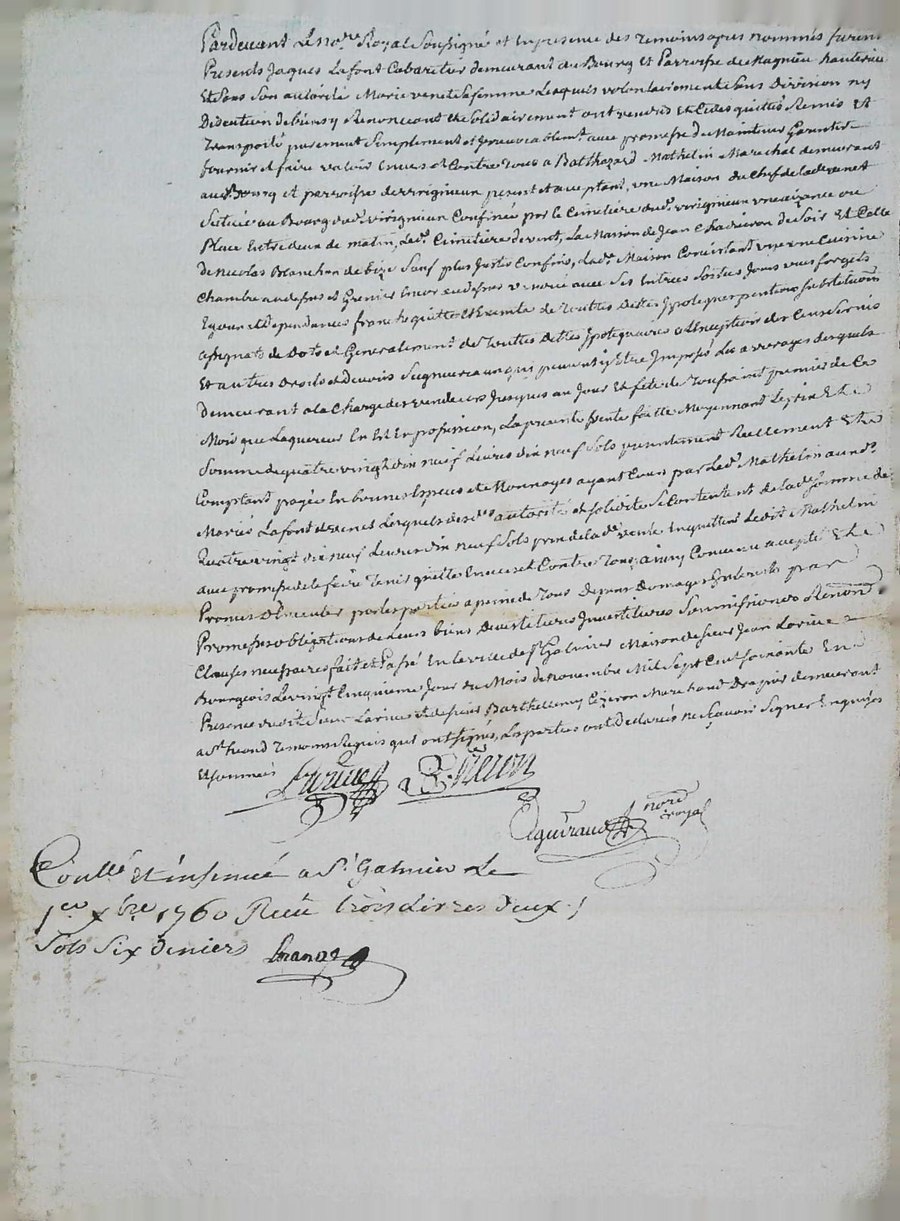 Pardevant Le no.re Royal Soussigné et En presence des temoins apres nommés furent
Presents Jaques Lafont Cabaretier demeurant au Bourg et Parroisse de Magnieu hauterive
Et Sous Son autorité Marie venet Sa femme Lesquels volontairement Sans Division ny
Discution de biens y Renonceant et Solidairement ont vendus Et Cedés quittés Remis Et
transporté purement Simplement et Irrevocablement avec promesse de Maintenir Garentir
fournir et faire valoir Envers et Contre tous a Balthazard Mathelin Marechal demeurant
au Bourg et parroisse de virigneux present et acceptant, une Maison du Chef de lad. venet
Situéé au Bourg dud. virigneux Confinéé par le Cimetiére dud. virigneux une aizance ou
Place Entredeux de matin, led. Cimetiére de vent, La Maison de Jean Chadeiron de Soir Et Celle
de Nicolas Blanchon de bize Sauf plus Justes Confins, lad. Maison Concistant En une Cuisine
Chambre au dessus et Grenier Encor au dessus avec Ses Entrées Sorties Jours vues forgets
Egouts et dependances franche quitte et Exempte de touttes dettes Ipoteques pentions Substitutions
assignats de Dots et Generalement de touttes dettes Ipotequaires a L'exception des Cens Servis
Et autres Droits et Devoirs Seigneuriaux qui peuvent y Etre Imposés Les arrerages desquels
demeurant a la Charge des vendeurs Jusques au Jour Et fete de toussaint premier de Ce
Mois que Laquereur En Est En possession, La presente vente faitte Moyennant Le prix Et
Somme de quatre vingt dix neuf Livres dix neuf Sols presentement Reellement Et
Comptant payéé En bonnes Especes de Monnoyes ayant Cours par Led. Mathelin aux d.
Mariés Lafont et venet Lesquels de Sd. autorité et Solidité Se Contentent de lad. Somme de
Quatre vingt dix neuf Livres dix neuf Sols prix de lad. vente En quittent Ledit Mathelin
avec promesse de le faire tenir quitte Envers et Contre tous, ainsy Convenu accepté Et
Promis Observer par les parties a peine de tous depens Domages Interets par
Promesses obligations de Leurs biens Devestitures Investitures Soumissions Renon.ons
Clauses necessaires fait et Passé En la ville de St Galmier Maison de Sieur Jean Lariué
Bourgeois Le vingt Cinquieme Jour du Mois de Novembre Mil Sept Cent Soixante En
Presence dudit Sieur Lariué et de Sieur Barthellemy Marchand Drapier demeurant
a St heand temoins Requis qui ont Signés, Les parties ont Declarés ne Sçavoir Signer Enquises
Et Sommées
no.re royal
Conllé Et insinué a St Galmier Le
1er xbre 1760 Reçu trois Livres deux
Sols Six Deniers